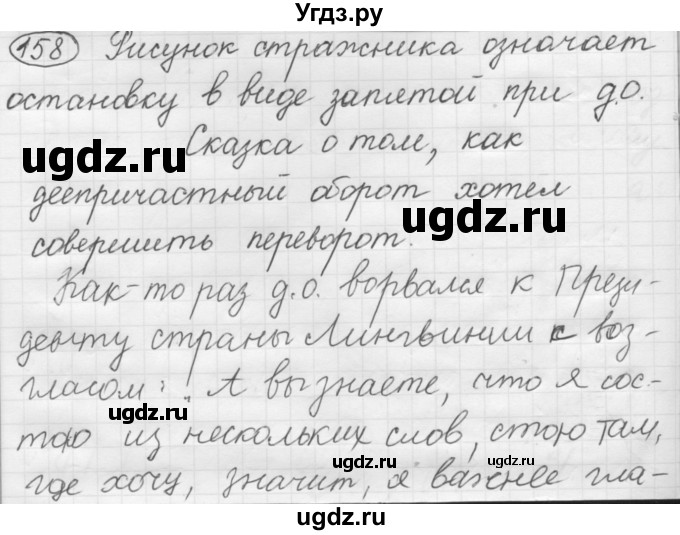 Угдз.ру
158 Рисунок стражника означает
остановку в виде запятой при д.о.
ugdz.ru
Сказка о том, как
деепричастный оборот хотел
ugdz.ru
совершить переворот.
ugdz.ru
Как-то раз д.о. ворвался к Прези-
денту страны Лингвинии с воз-
гласом: „А вы знаете, что я сос-
ugdz.ru
тою из нескольких слов, стою там,
ugdz.ru ugdz.ru
где хочу, значит, я важнее гла-
ugdz.ru